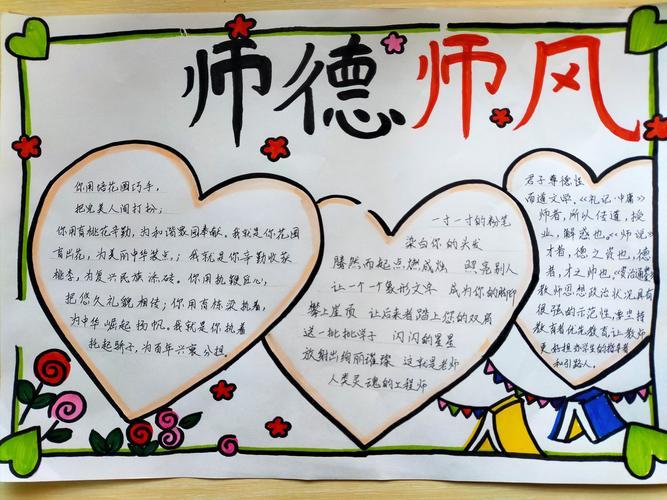 师德师风
你用培花园巧手，
把完美人间打扮；
你用育桃花辛勤，为和谐家园奉献。我就是你花园
育出花，为美丽中华装点；我就是你辛勤收获
桃李，为复兴民族添砖。你用执鞭巨心，
把悠久礼貌相传；你用育栋梁执着，
为中华崛起扬帆。我就是你执着
托起骄子，为百年兴衰分担。
一寸一寸的粉笔
染白你的头发
腾然而起点燃成烛 照亮别人
让一个一个象形文字 成为你的脚印
攀上崖顶 让后来者踏上您的双肩
送一批批学子 闪闪的星星
放射出绚丽璀璨 这就是老师
人类灵魂的工程师
君子尊德性
而道文学，《礼记·中庸》
师者，所以传道，授
业，解惑也，《师说》
才者，德之资也，德
者，才之帅也，《资治通鉴》
教师思想政治状况具有
很强的示范性，要坚持
教育者优先教育，让教师
更好担当学生的指导者
和引路人。